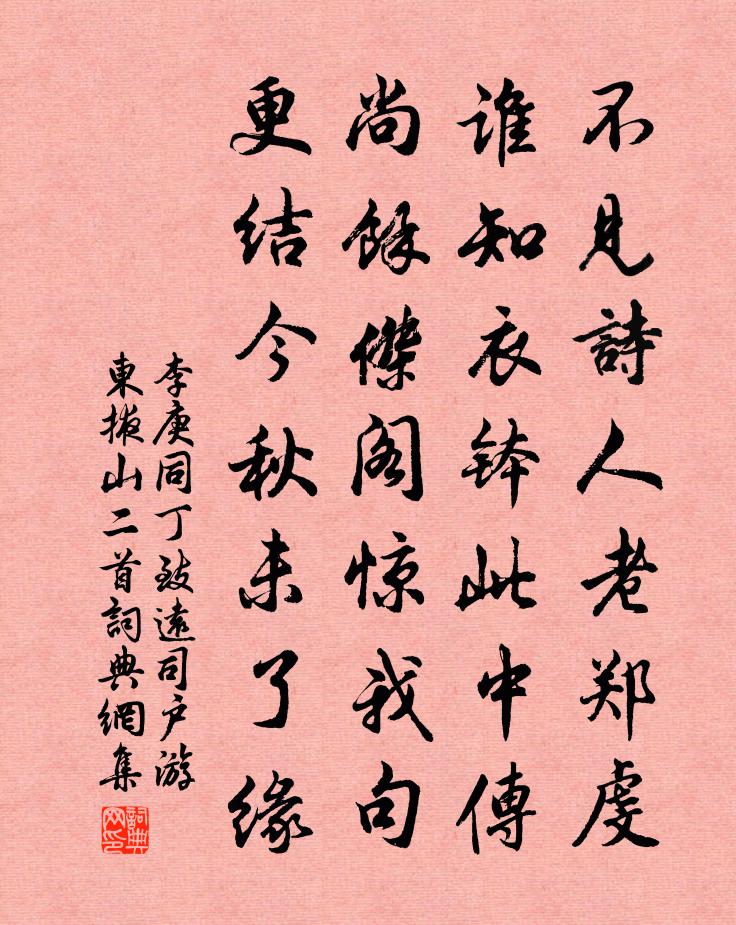 不見詩人老郑虔
誰知衣鉢此中傳
尚餘傑阁惊我句
更结今秋未了緣
李庚同丁致遠司户游
東掖山二首詞典網集
詞典网印